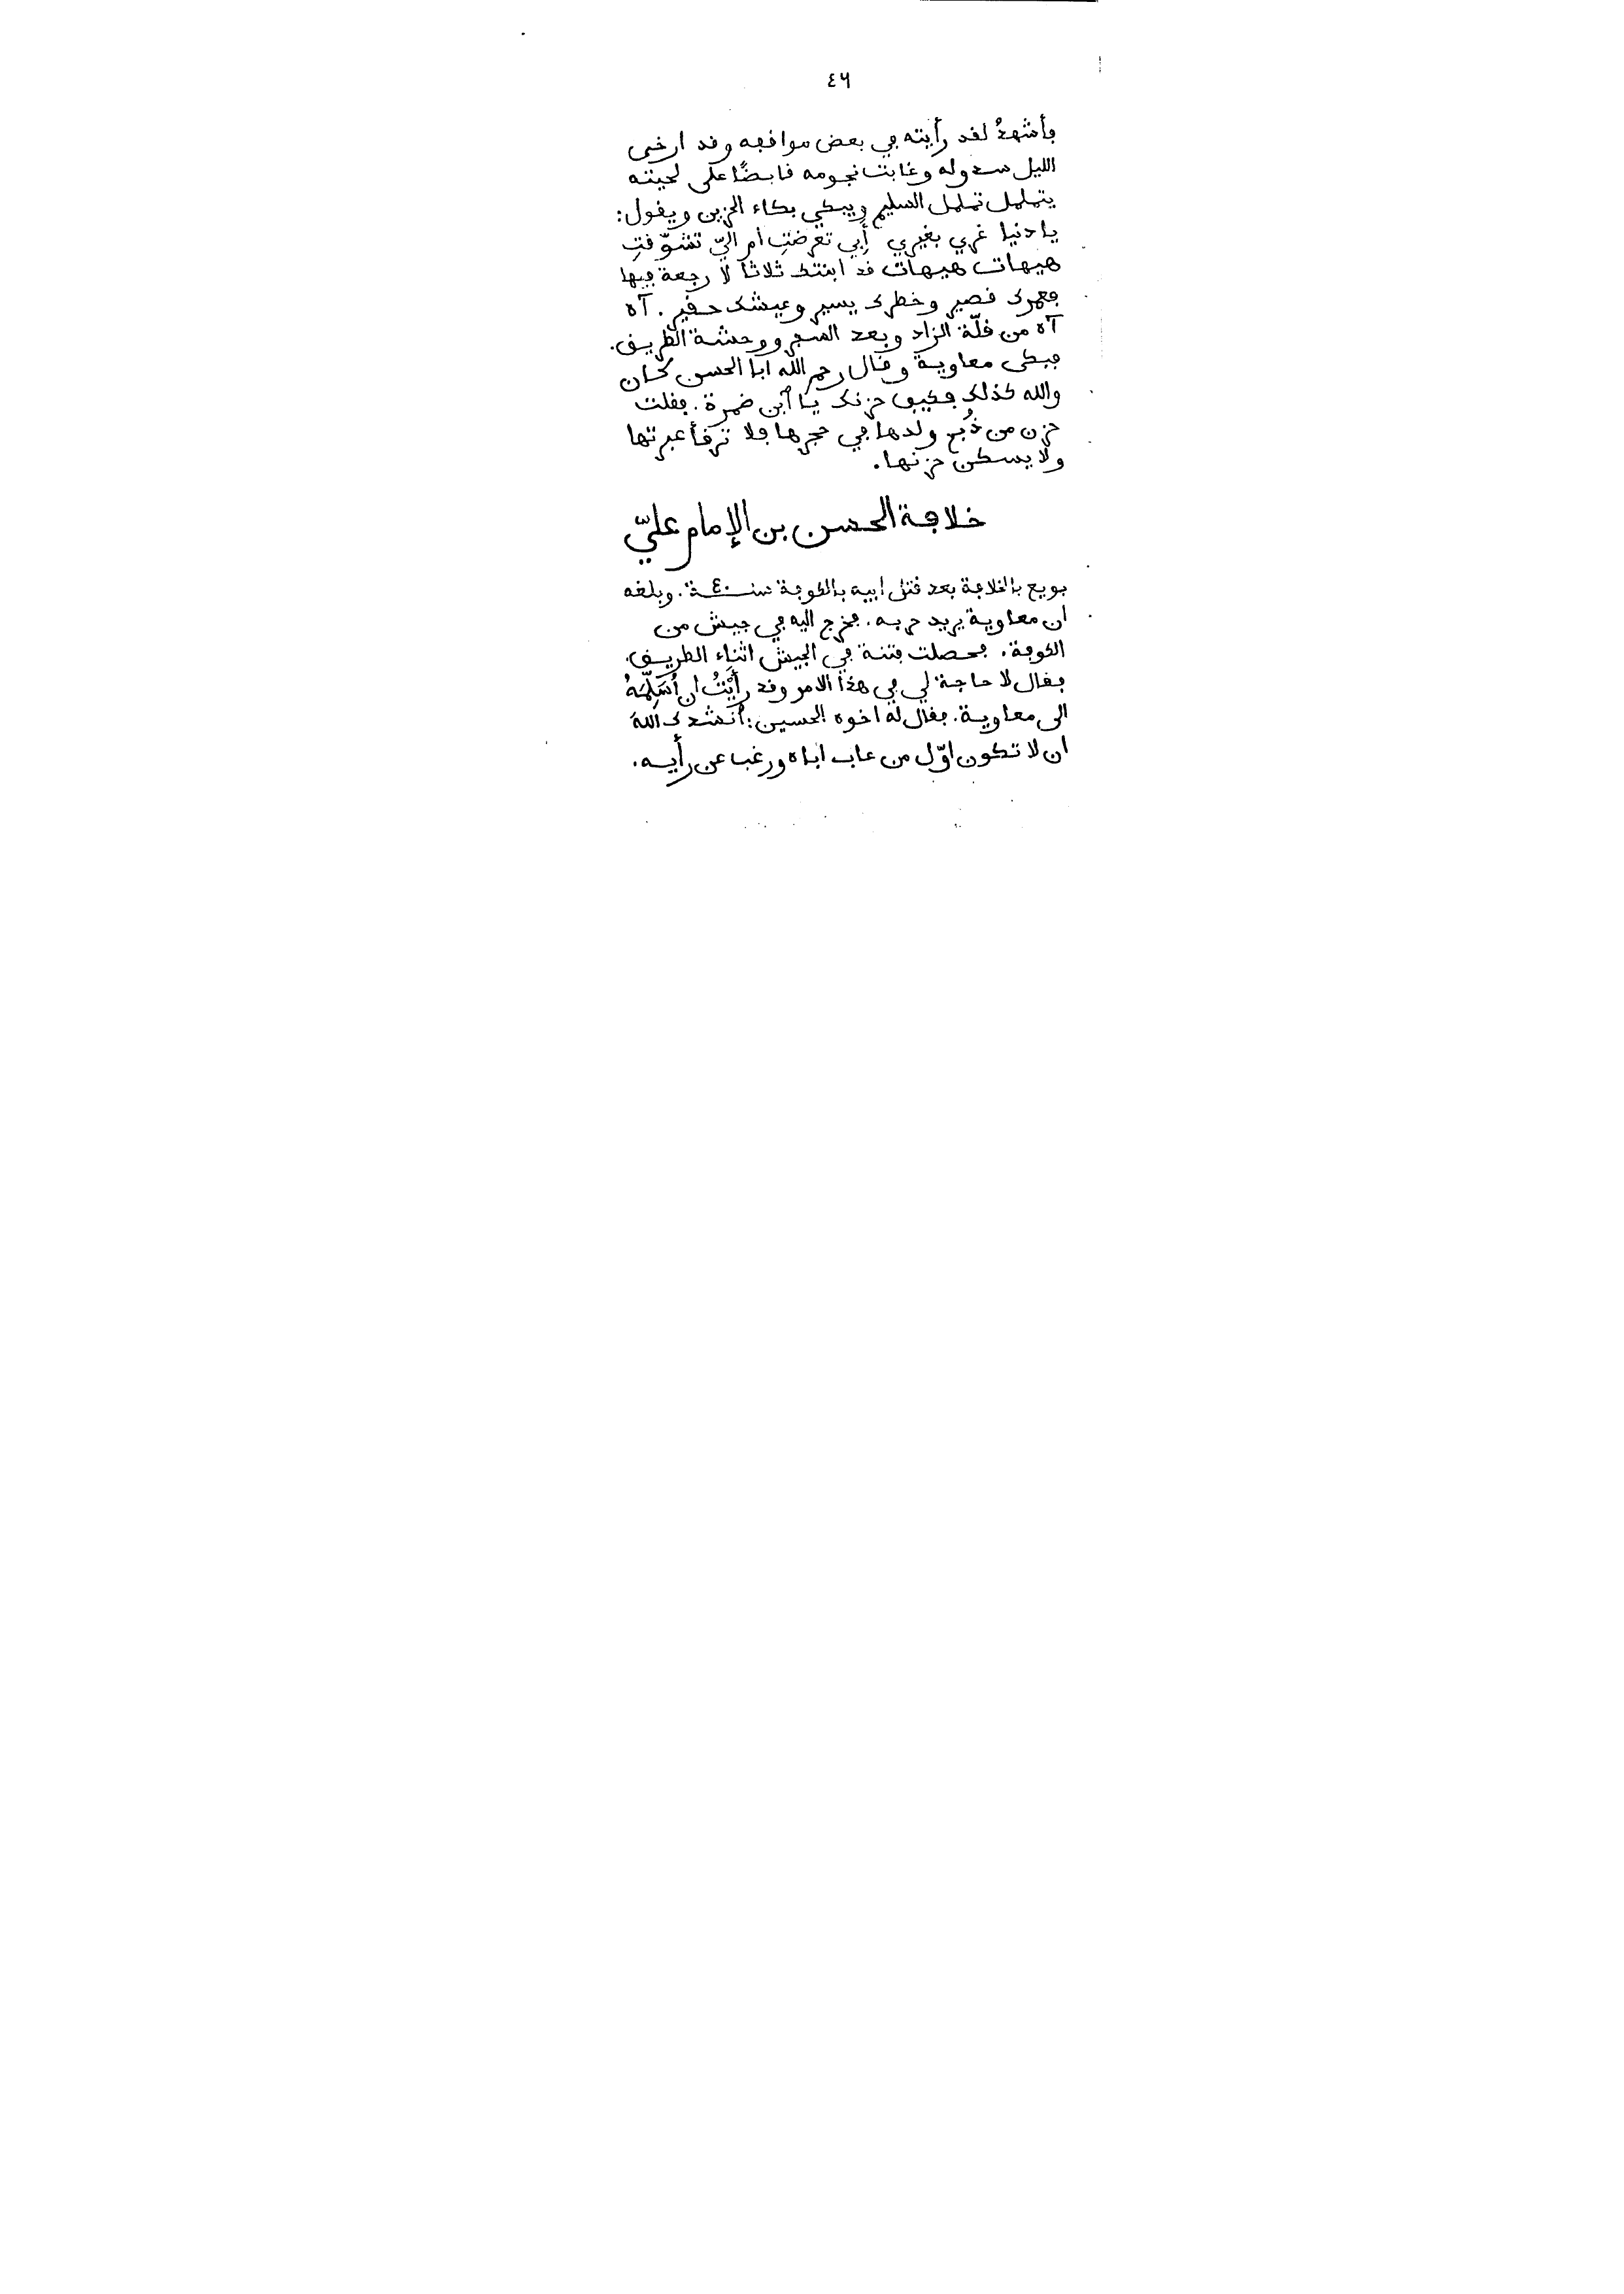 ٤٦
فأشهدُ لقد رأيته في بعض مواقفه وقد ارخى
الليل سدوله وغابت نجومه قابضًا على لحيته
يتململ تململ السليم ويبكي بكاء الحزين ويقول:
يا دنيا غري بغيري أَبِي تعرضتِ أم اليّ تشوّقتِ
هيهات هيهات قد ابنتك ثلاثا لا رجعة فيها
فعمرك قصير وخطرك يسير وعيشك حقير. آه
آه من قلّة الزاد وبعد السفر ووحشة الطريق.
فبكى معاوية وقال رحم الله ابا الحسن كان
والله كذلك فكيف حزنك يا ٱبن ضمرة. فقلت
حزن من ذُبح ولدها في حجرها فلا ترقأ عبرتها
ولا يسكن حزنها.
خلافة الحسن بن الإمام عليّ
بويع بالخلافة بعد قتل ابيه بالكوفة سنة ٤٠. وبلغه
ان معاوية يريد حربه. فخرج اليه في جيش من
الكوفة. فحصلت فتنة في الجيش اثناء الطريق.
فقال لا حاجة لي في هذا الامر وقد رأَيْتُ ان أُسَلِّمَهُ
الى معاوية. فقال له اخوه الحسين: أنشدك اللهَ
ان لا تكون اوّل من عاب اباه ورغب عن رأيه.